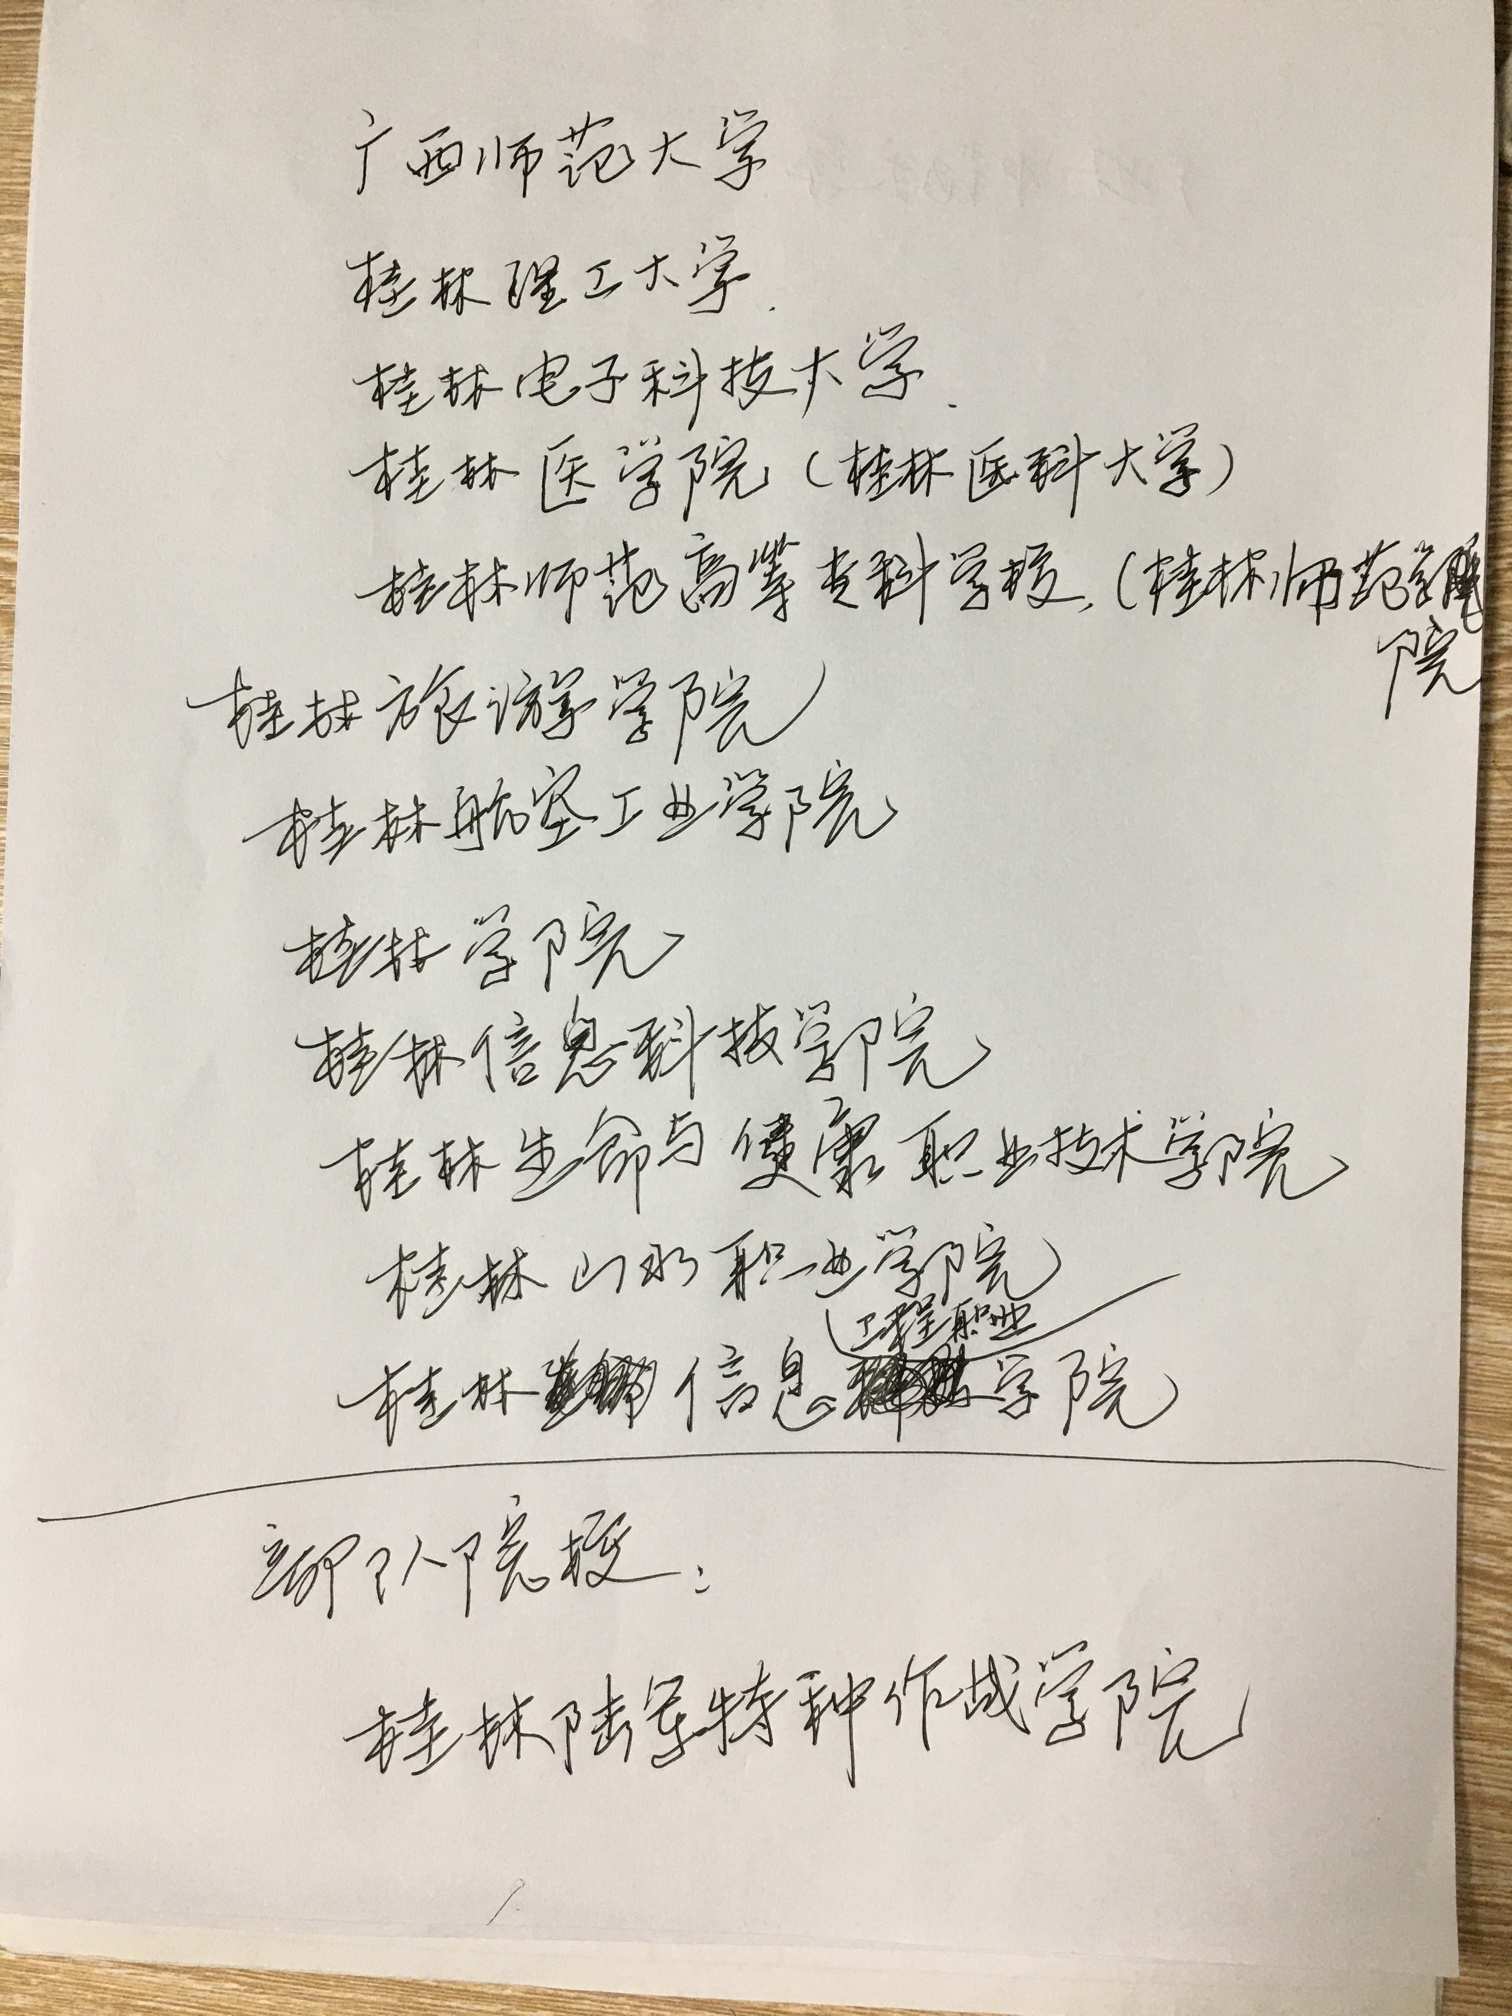 广西师范大学
桂林理工大学.
桂林电子科技大学.
桂林医学院(桂林医科大学)
桂林师范高等专科学校.(桂林师范学
院
桂林旅游学学院
桂林航空工业学院
桂林学院
桂林信息科技学院
桂林生命与健康职业技术学院
桂林山水职业学院
工程职业
桂林信息学院
部队院校:
桂林陆军特种作战学院